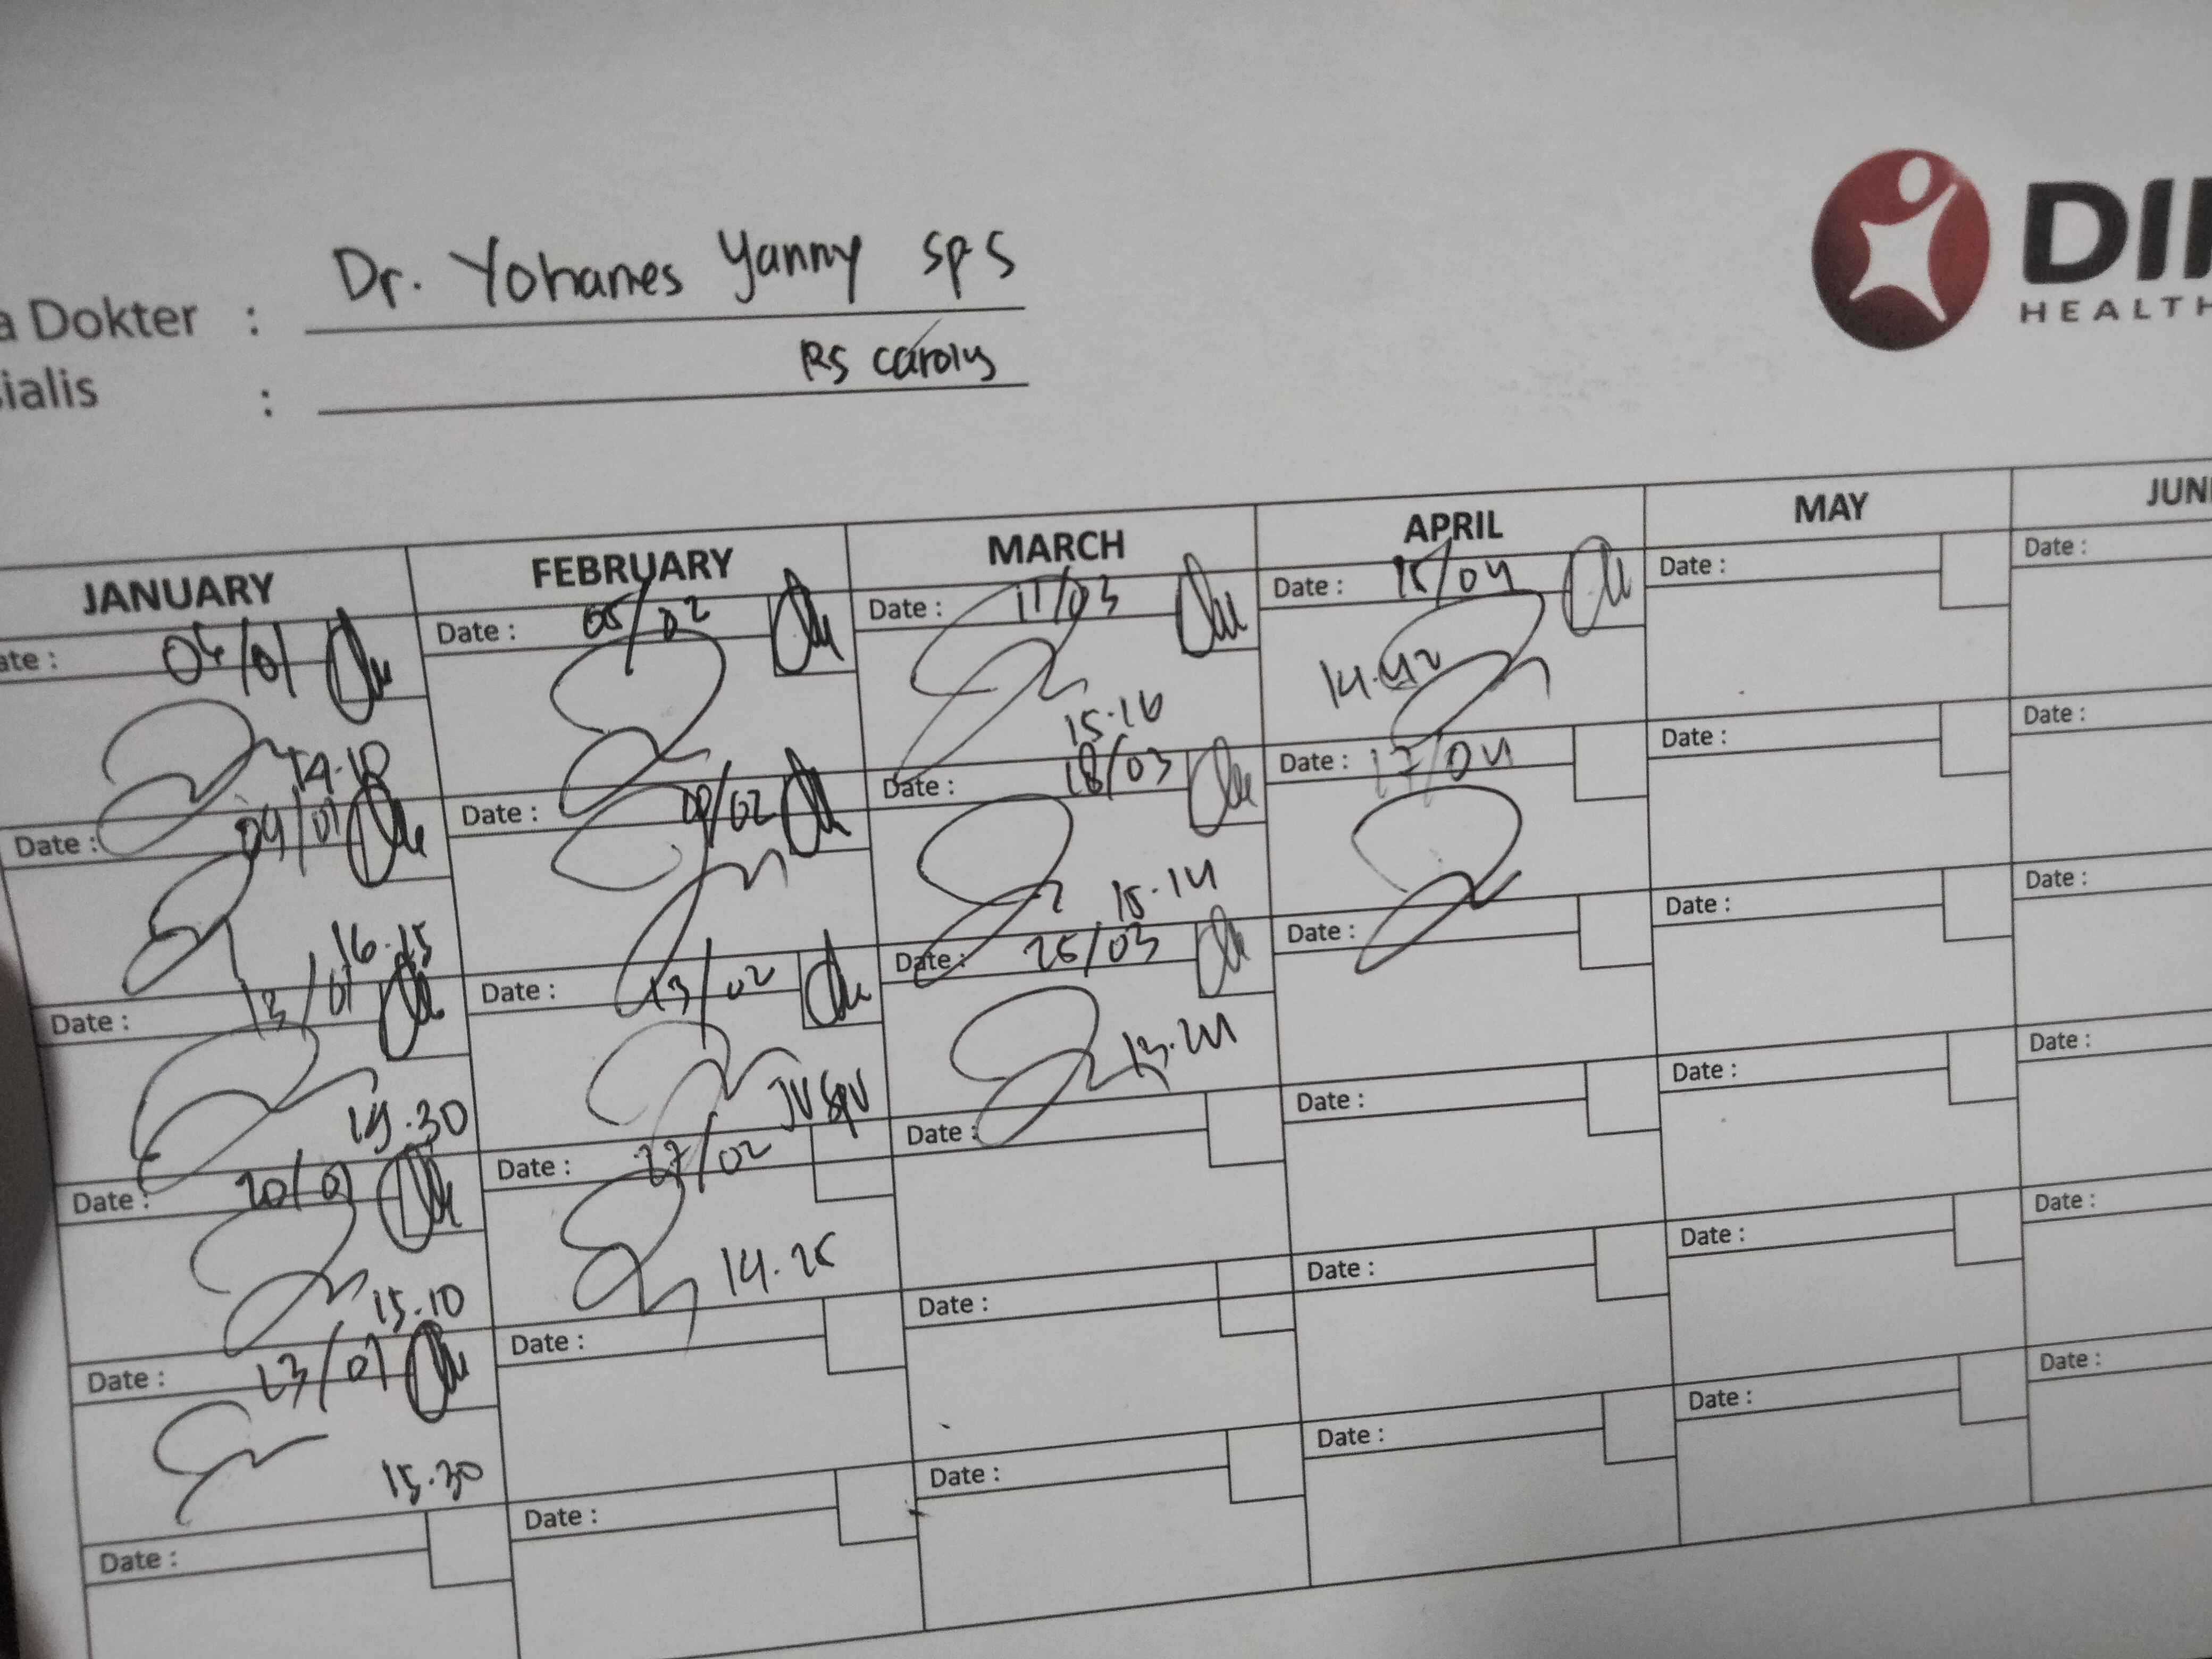 a Dokter : Dr. Yohanes Yanny SpS
ialis : RS Carolus
DI
HEALTH
JANUARY FEBRUARY MARCH APRIL MAY JUN
ate : /01 Date : 05/02 Date : 11/03 Date : 15/04 Date : Date :
14.10 15.16 14.42
Date : 09/01 Date : 09/02 Date : 18/03 Date : 17/04 Date : Date :
16.15 15.14
Date : 13/01 Date : 13/02 Date : 25/03 Date : Date : Date :
15.30 JV SPV 13.21
Date : 20/01 Date : 27/02 Date : Date : Date : Date :
15.10 14.25
Date : 23/01 Date : Date : Date : Date : Date :
15.30
Date : Date : Date : Date : Date : Date :